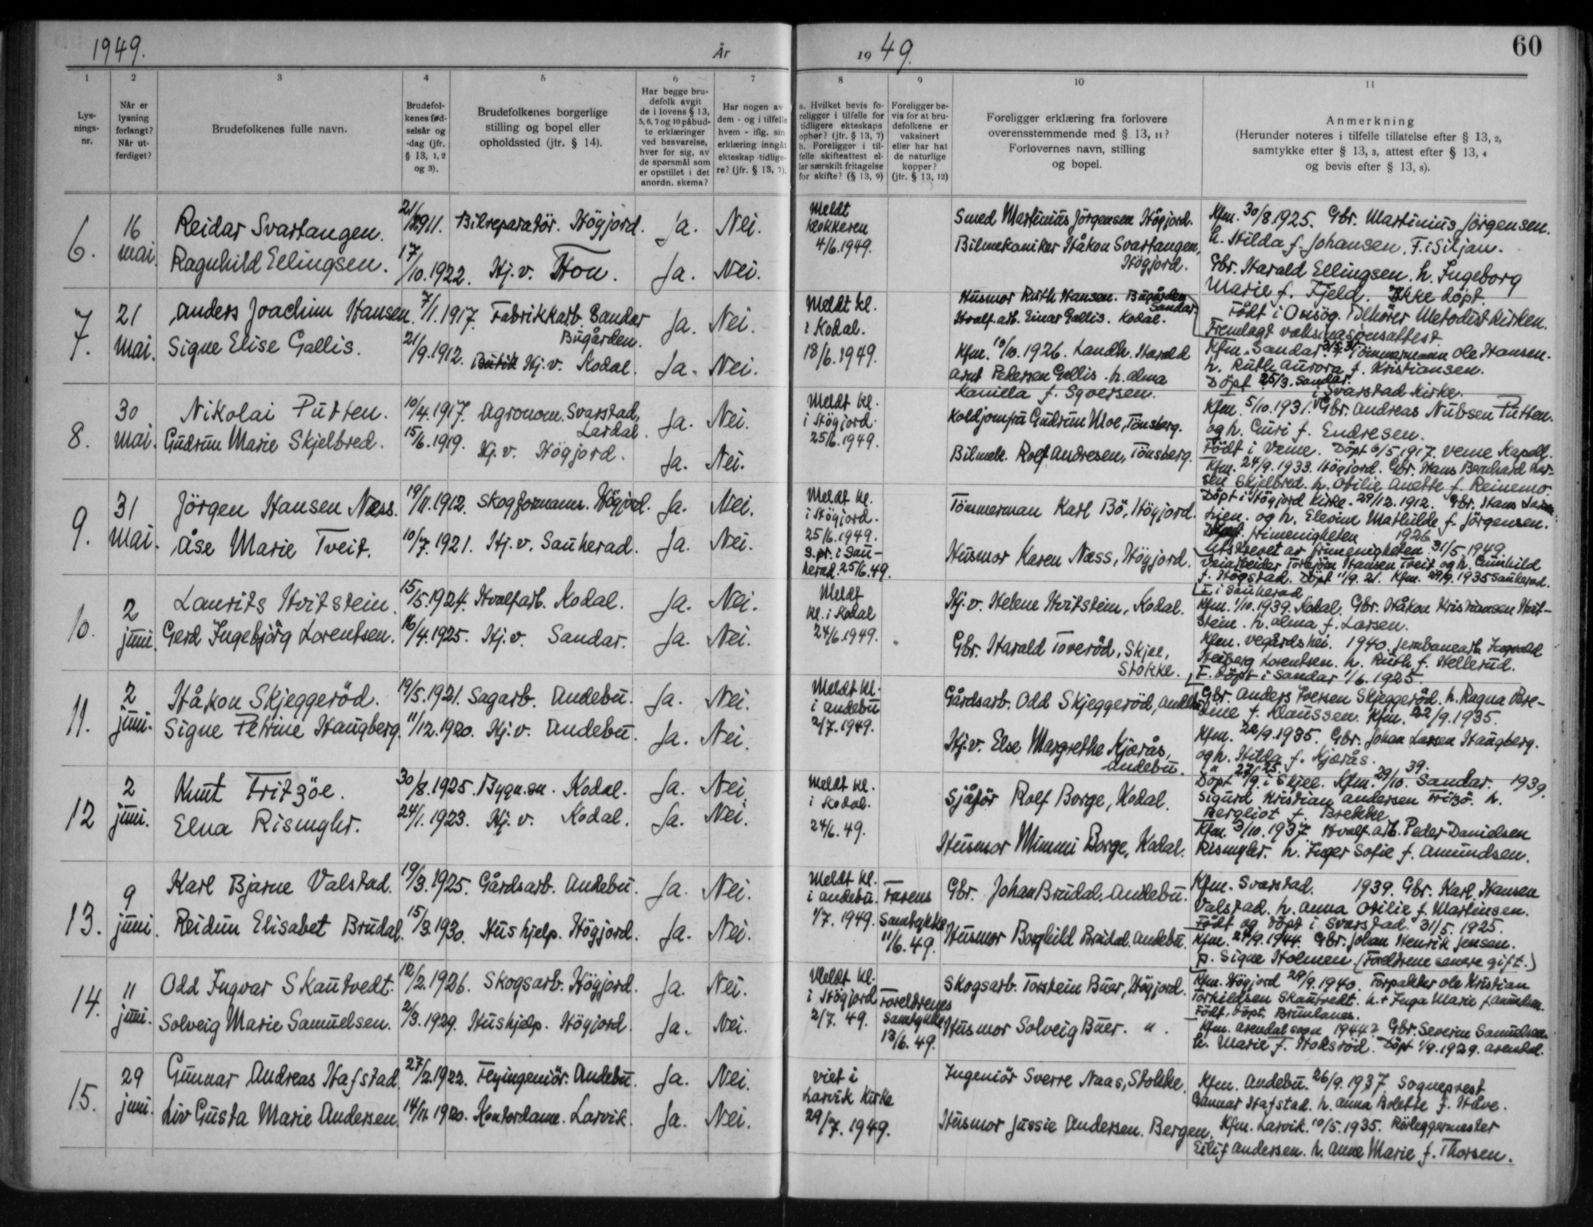 1949.
År
19 49.
60
1
2
3
4
5
6
7
8
9
10
11
Lys-
nings-
nr.
Når er
lysning
forlangt?
Når ut-
ferdiget?
Brudefolkenes fulle navn.
Brudefol-
kenes fød-
selsår og
-dag (jfr.
§ 13, 1, 2
og 3).
Brudefolkenes borgerlige
stilling og bopel eller
opholdssted (jfr. § 14).
Har begge bru-
defolk avgit
de i lovens § 13,
5, 6, 7 og 10 påbud-
te erklæringer
ved besvarelse,
hver for sig, av
de spørsmål som
er opstillet i det
anordn. skema?
Har nogen av
dem - og i tilfelle
hvem - iflg. sin
erklæring inngåt
ekteskap tidlige-
re? (jfr. § 13, 7).
a. Hvilket bevis fo-
religger i tilfelle for
tidligere ekteskaps
ophør? (jfr. § 13, 7)
b. Foreligger i til-
felle skifteattest el-
ler særskilt fritagelse
for skifte? (§ 13, 9)
Foreligger be-
vis for at bru-
defolkene er
vaksinert
eller har hat
de naturlige
kopper?
(jfr. § 13, 12)
Foreligger erklæring fra forlovere
overensstemmende med § 13, 11?
Forlovernes navn, stilling
og bopel.
Anmerkning
(Herunder noteres i tilfelle tillatelse efter § 13, 2,
samtykke efter § 13, 3, attest efter § 13, 4
og bevis efter § 13, 8).
6.
16
mai
Reidar Svartangen.
21/12 1911. Bilreparatör. Högjord.
Ja. Nei.
Ragnhild Ellingsen.
17/10.1922. Hj.v. Hon.
Ja. Nei.
Meldt
klokkeren
4/6.1949.
Smed Martinius Jörgensen Högjord.
Bilmekaniker Håkon Svartangen,
Högjord.
Kfm. 30/8 1925. Gbr. Martinius Jörgensen.
h. Hilda f. Johansen. F. i Siljan.
Gbr. Harald Ellingsen. h. Ingeborg
Marie f. Fjeld. Ikke döpt.
7.
21
mai.
Anders Joachim Hansen.
7/1.1917. Fabrikkarb. Sandar
Bugården.
Ja. Nei.
Signe Elise Gallis.
21/9.1912. Butik Hj.v. Kodal.
Ja. Nei.
Meldt kl.
i Kodal.
18/6.1949.
Husmor Ruth Hansen. Bugården
Sandar
Hvalf.arb. Einar Gallis. Kodal.
Kfm. 10/10.1926. Landh. Harald
Arnt Pedersen Gallis. h. Alma
Kamilla f. Syversen.
Födt i Onsög. Tilhörer Metodistkirken.
Fremlagt vaksinasjonsattest.
Kfm. Sandar Tömmermann Ole Hansen.
h. Ruth Aurora f. Kristiansen.
Döpt 25/3. Sandar.
8.
30
mai.
Nikolai Putten.
10/4.1917. Agronom. Svarstad,
Lardal.
Ja. Nei.
Gudrun Marie Skjelbred.
15/6.1919. Hj.v. Högjord.
Ja. Nei.
Meldt kl.
i Högjord.
25/6.1949.
Koldjomfru Gudrun Moe, Tönsberg.
Bilmek. Rolf Andresen, Tönsberg.
i Svarstad Kirke.
Kfm. 5/10.1931. Gbr. Andreas Nubsen Putten.
og h. Guri f. Endresen.
Födt i Veme. Döpt 6/5.1917. Veme Kapell.
Kfm. 24/9.1933. Högjord. Gbr. Hans Bernhard Lar-
sen Skjelbred. h. Otilie Anette f. Reinemo.
9.
31
mai.
Jörgen Hansen Næss.
19/11.1912. Skogformann. Högjord.
Ja. Nei.
Åse Marie Tveit.
10/7.1921. Hj.v. Sauherad.
Ja. Nei.
Meldt kl.
i Högjord.
25/6.1949.
s.pr. i Sau-
herad. 25/6.49.
Tömmerman Karl Bö, Högjord.
Husmor Karen Næss, Högjord.
Döpt i Högjord Kirke. 29/12.1912. Gbr. Hans
og h. Elevine Mathilde f. Jörgensen.
frimenigheten 1926
Utskrevet av frimenigheten 31/5.1949.
Veiarbeider Torbjörn Hansen Tveit og h. Gunhild
f. Högstad. Döpt 11/9.21. Kfm. 29/9.1935 Sauherad.
F. i Sauherad
10.
2
juni.
Laurits Hvitstein.
15/5.1924. Hvalfarb. Kodal.
Ja. Nei.
Gerd Ingebjörg Lorentsen.
16/4.1925. Hj.v. Sandar.
Ja. Nei.
Meldt
kl. i Kodal
24/6.1949.
Hj.v. Helene Hvitstein, Kodal.
Gbr. Harald Toveröd, Skjee,
Stokke.
Kfm. 1/10.1939. Kodal. Gbr. Håkon Kristiansen Hvit-
stein. h. Alma f. Larsen.
Kfm. Vegårdshei. 1940. Jernbanearb.
Heiberg Lorentsen. h. Ruth f. Hellerud.
F. döpt i Sandar 1/6.1925.
11.
2
juni.
Håkon Skjeggeröd.
19/5.1921. Sagarb. Andebu.
Ja. Nei.
Signe Petrine Haugberg.
11/12.1920. Hj.v. Andebu.
Ja. Nei.
Meldt kl.
i Andebu
2/7.1949.
Gårdsarb. Odd Skjeggeröd, Andebu
Hj.v. Else Margrethe Kjærås,
Andebu.
Gbr. Anders Iversen Skjeggeröd. h. Ragna Pere-
f. Klaussen. Kfm. 22/9.1935.
Kfm. 22/9.1935. Gbr. Johan Larsen Haugberg.
og h. Hilda f. Kjærås.
12
2
juni.
Knut Fritzöe.
30/8.1925. Bygn.sn. Kodal.
Ja. Nei.
Elna Rismyhr.
24/1.1923. Hj.v. Kodal.
Ja. Nei.
Meldt kl.
i Kodal.
24/6.49.
Sjåför Rolf Borge, Kodal.
Husmor Mimmi Borge, Kodal.
Döpt 27/9.25. i Skjee. Kfm. 29/10.39. Sandar. 1939.
Sigurd Kristian Andersen Fritzö. h.
Bergliot f. Brekke
Kfm. 3/10.1937. Hvalf.arb. Peder Danielsen
Rismyhr. h. Inger Sofie f. Amundsen.
13.
9
juni.
Karl Bjarne Valstad.
19/3.1925. Gårdsarb. Andebu.
Ja. Nei.
Reidun Elisabet Brudal.
15/3.1930. Hushjelp. Högjord.
Ja. Nei.
Meldt kl.
i Andebu.
1/7.1949.
Farens
samtykke
11/6.49.
Gbr. Johan Brudal, Andebu.
Husmor Borghild Brudal. Andebu.
Kfm. Svarstad. 1939. Gbr. Karl Hansen
Valstad. h. Anna Otilie f. Martinsen.
Födt og döpt i Svarstad. 31/5.1925.
Kfm. 24/9.1944. Gbr. Johan Henrik Jensen.
p. Signe Holmen (Foreldrene senere gift.)
14.
11
juni.
Odd Ingvar Skautvedt.
12/2.1926. Skogsarb. Högjord.
Ja. Nei.
Solveig Marie Samuelsen.
2/3.1929. Hushjelp. Högjord.
Ja. Nei.
Meldt kl.
i Högjord
2/7.49.
Foreldrenes
samtykke
13/6.49.
Skogsarb. Torstein Buer, Högjord.
Husmor Solveig Buer. " .
Kfm. Högjord 29/9.1940. Forpakter Ole Kristian
Torkildsen Skautvedt. h. Inga Marie f.
Födt, döpt Brunlanes.
Kfm. Arendal sogn 1944? Gbr. Severin Samuelsen
h. Marie f. Hoksröd. Döpt 1/9.1929. Arendal.
15.
29
juni.
Gunnar Andreas Hafstad.
27/2.1922. Flyingeniör. Andebu.
Ja. Nei.
Liv Gusta Marie Andersen.
14/11.1920. Kontordame. Larvik.
Ja. Nei.
Viet i
Larvik Kirke
29/7.1949.
Ingeniör Sverre Naas, Stokke.
Husmor Jussie Andersen. Bergen.
Kfm. Andebu. 26/9.1937. Sogneprest
Gunnar Hafstad. h. Anna Bolette f. Helve.
Kfm. Larvik. 10/5.1935. Rörleggermester
Eilif Andersen. h. Anne Marie f. Thorsen.